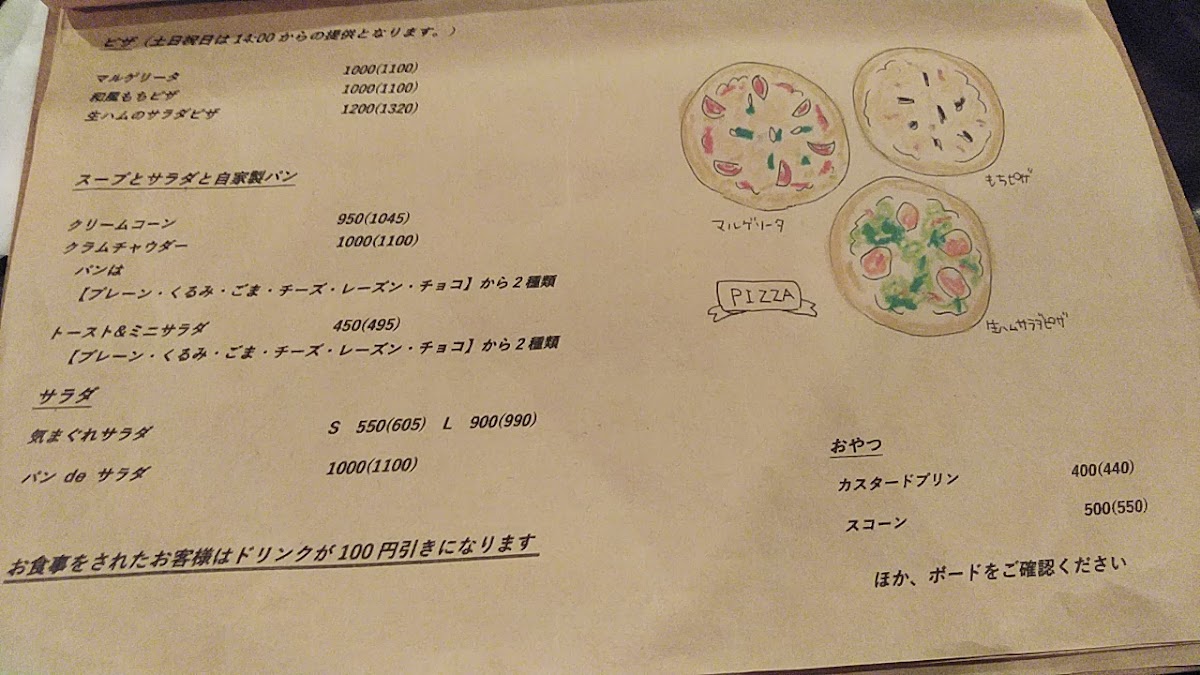 ピザ（土日祝日は14:00からの提供となります。）
マルゲリータ 1000(1100)
和風もちピザ 1000(1100)
生ハムのサラダピザ 1200(1320)
スープとサラダと自家製パン
クリームコーン 950(1045)
クラムチャウダー 1000(1100)
パンは
【プレーン・くるみ・ごま・チーズ・レーズン・チョコ】から2種類
トースト&ミニサラダ 450(495)
【プレーン・くるみ・ごま・チーズ・レーズン・チョコ】から2種類
サラダ
気まぐれサラダ S 550(605) L 900(990)
パン de サラダ 1000(1100)
お食事をされたお客様はドリンクが100円引きになります
マルゲリータ
もちピザ
生ハムサラダピザ
PIZZA
おやつ
カスタードプリン 400(440)
スコーン 500(550)
ほか、ボードをご確認ください